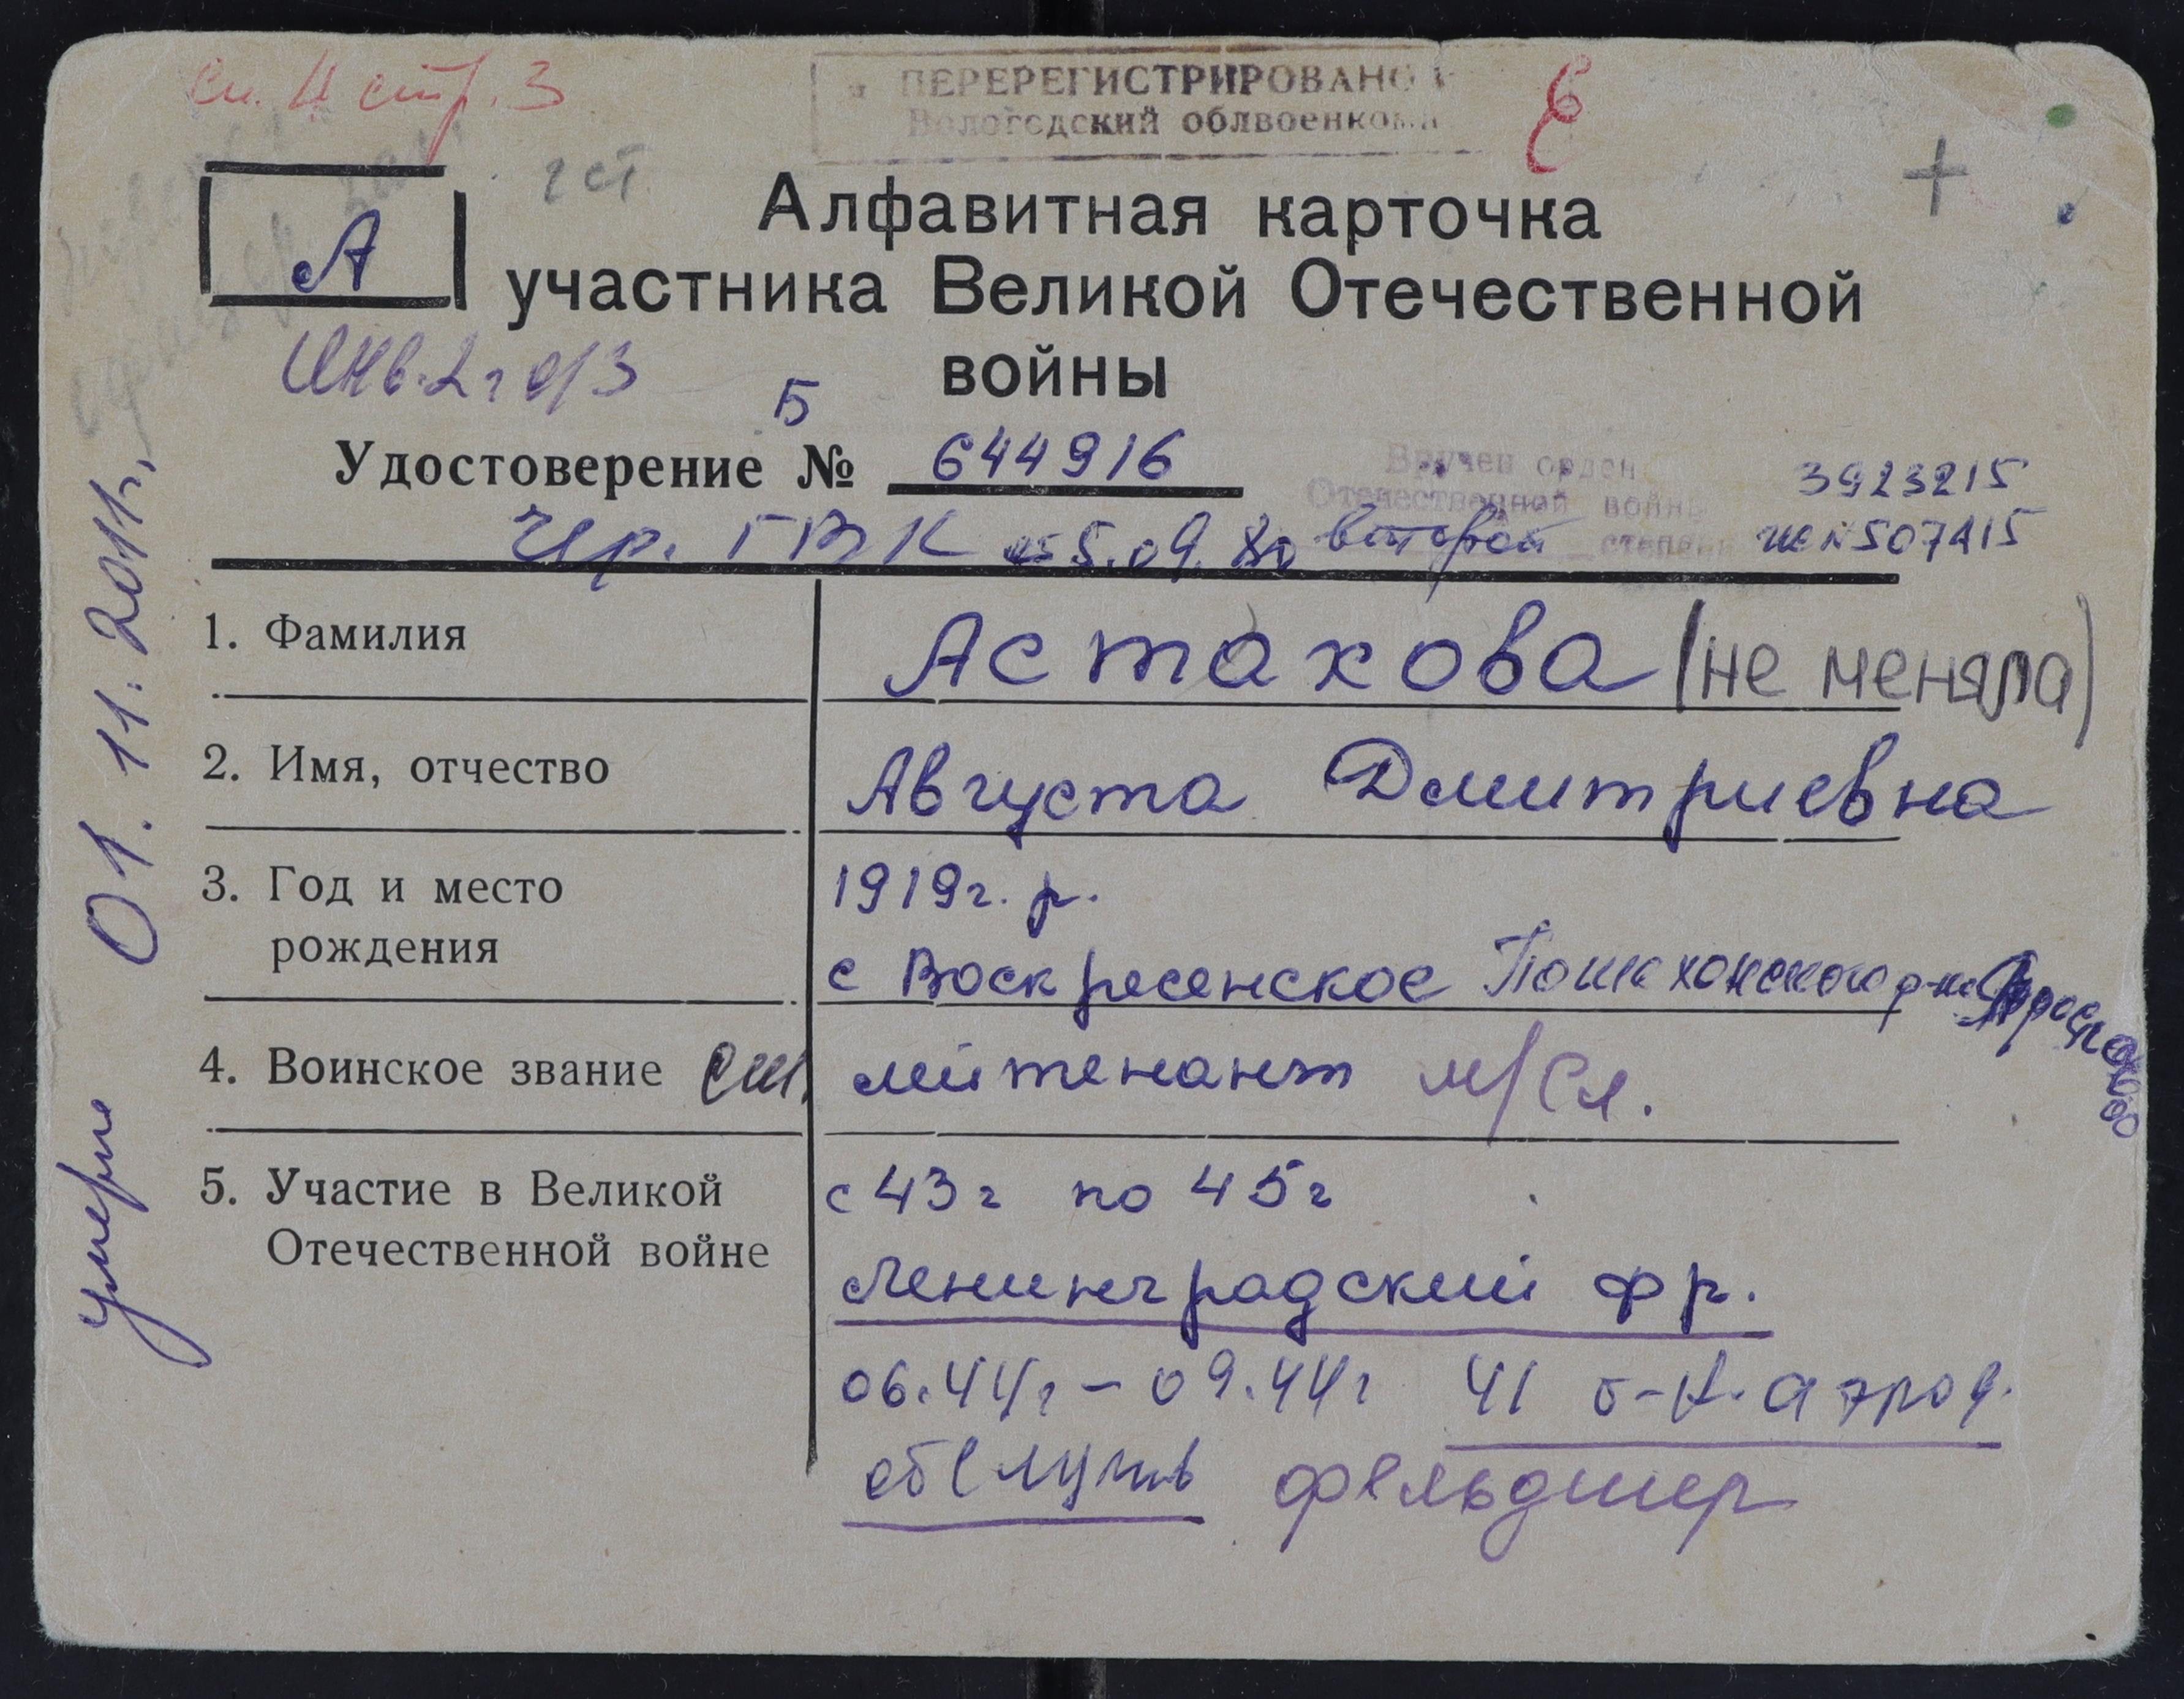 сп. 4 стр. 3
ПЕРЕРЕГИСТРИРОВАНО
Вологодский облвоенком
2 ст.
А
Алфавитная карточка
участника Великой Отечественной
войны
+
Инв. 2г о/з
Б
Удостоверение № 644916
Вручен орден
Отечественной войны
второй степени
3923215
Чер. ГВК от 5.09.80
№ 507415
1. Фамилия Астахова (не меняла)
2. Имя, отчество Августа Дмитриевна
3. Год и место рождения 1919г. р.
с Воскресенское Пошехонского р-на Ярославской
4. Воинское звание ст. лейтенант м/сл.
5. Участие в Великой Отечественной войне с 43г по 45г
Ленинградский фр.
06.44г – 09.44г 41 б-н. аэрод.
обслужив фельдшер
умерла 01.11.2011г.